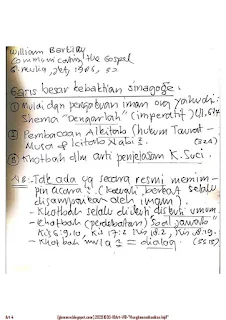 William Barclay
Communicating the Gospel
G. Mulia, Jkt, 1986, 32
Garis besar kebaktian sinagoge.
1) Mulai dgn pengakuan iman org Yahudi:
Shema "Dengarlah" (imperatif)
2) Pembacaan Alkitab (hukum Taurat -
Musa & kitab Nabi2. (324)
3) Khotbah dlm arti penjelasan K. Suci.
NB: Tak ada yg secara resmi memim-
pin acara2. (kecuali berkat selalu
disampaikan oleh imam).
- Khotbah selalu diikuti diskusi umum
- Khotbah (perdebatan) soal jawab
Kis 6:9.10, Kis 17:2 Kis 18.2, Kis 18.19.
- Khotbah mula2 = dialog.